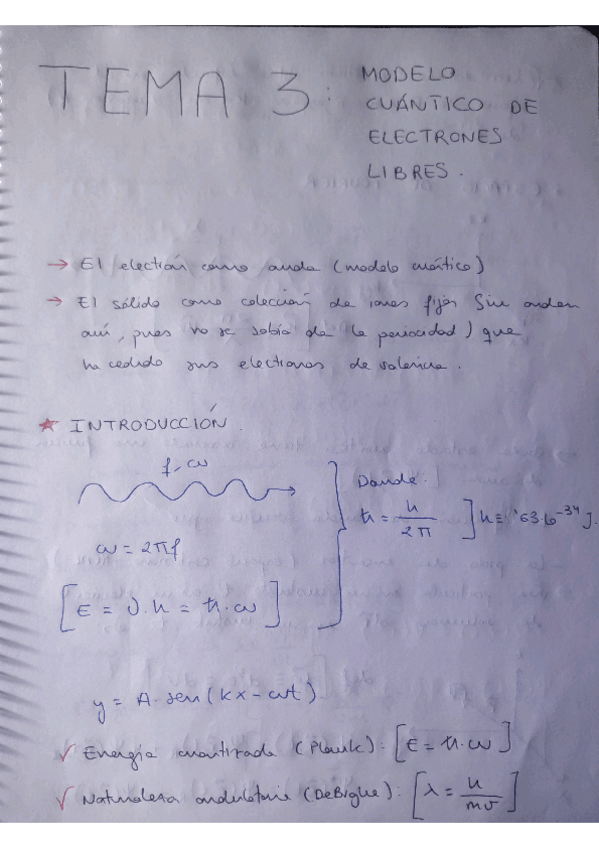 TEMA 3: MODELO
CUÁNTICO DE
ELECTRONES
LIBRES.
→ El electrón como onda (modelo cuántico)
→ El sólido como colección de iones fijos Sin orden
aúi, pues no se sabía de la periocidad) que
ha cedido sus electrones de valencia.
★ INTRODUCCIÓN.
f, ω
ω = 2πf
[E = ν.h = ħ.ω]
Donde:
ħ = h / 2π ] h ≡ '63.10⁻³⁴ J.
y = A. sen(kx - ωt)
√ Energía cuantizada (Planck): [E = ħ.ω]
√ Naturaleza ondulatoria (DeBroglie): [λ = h / mv]